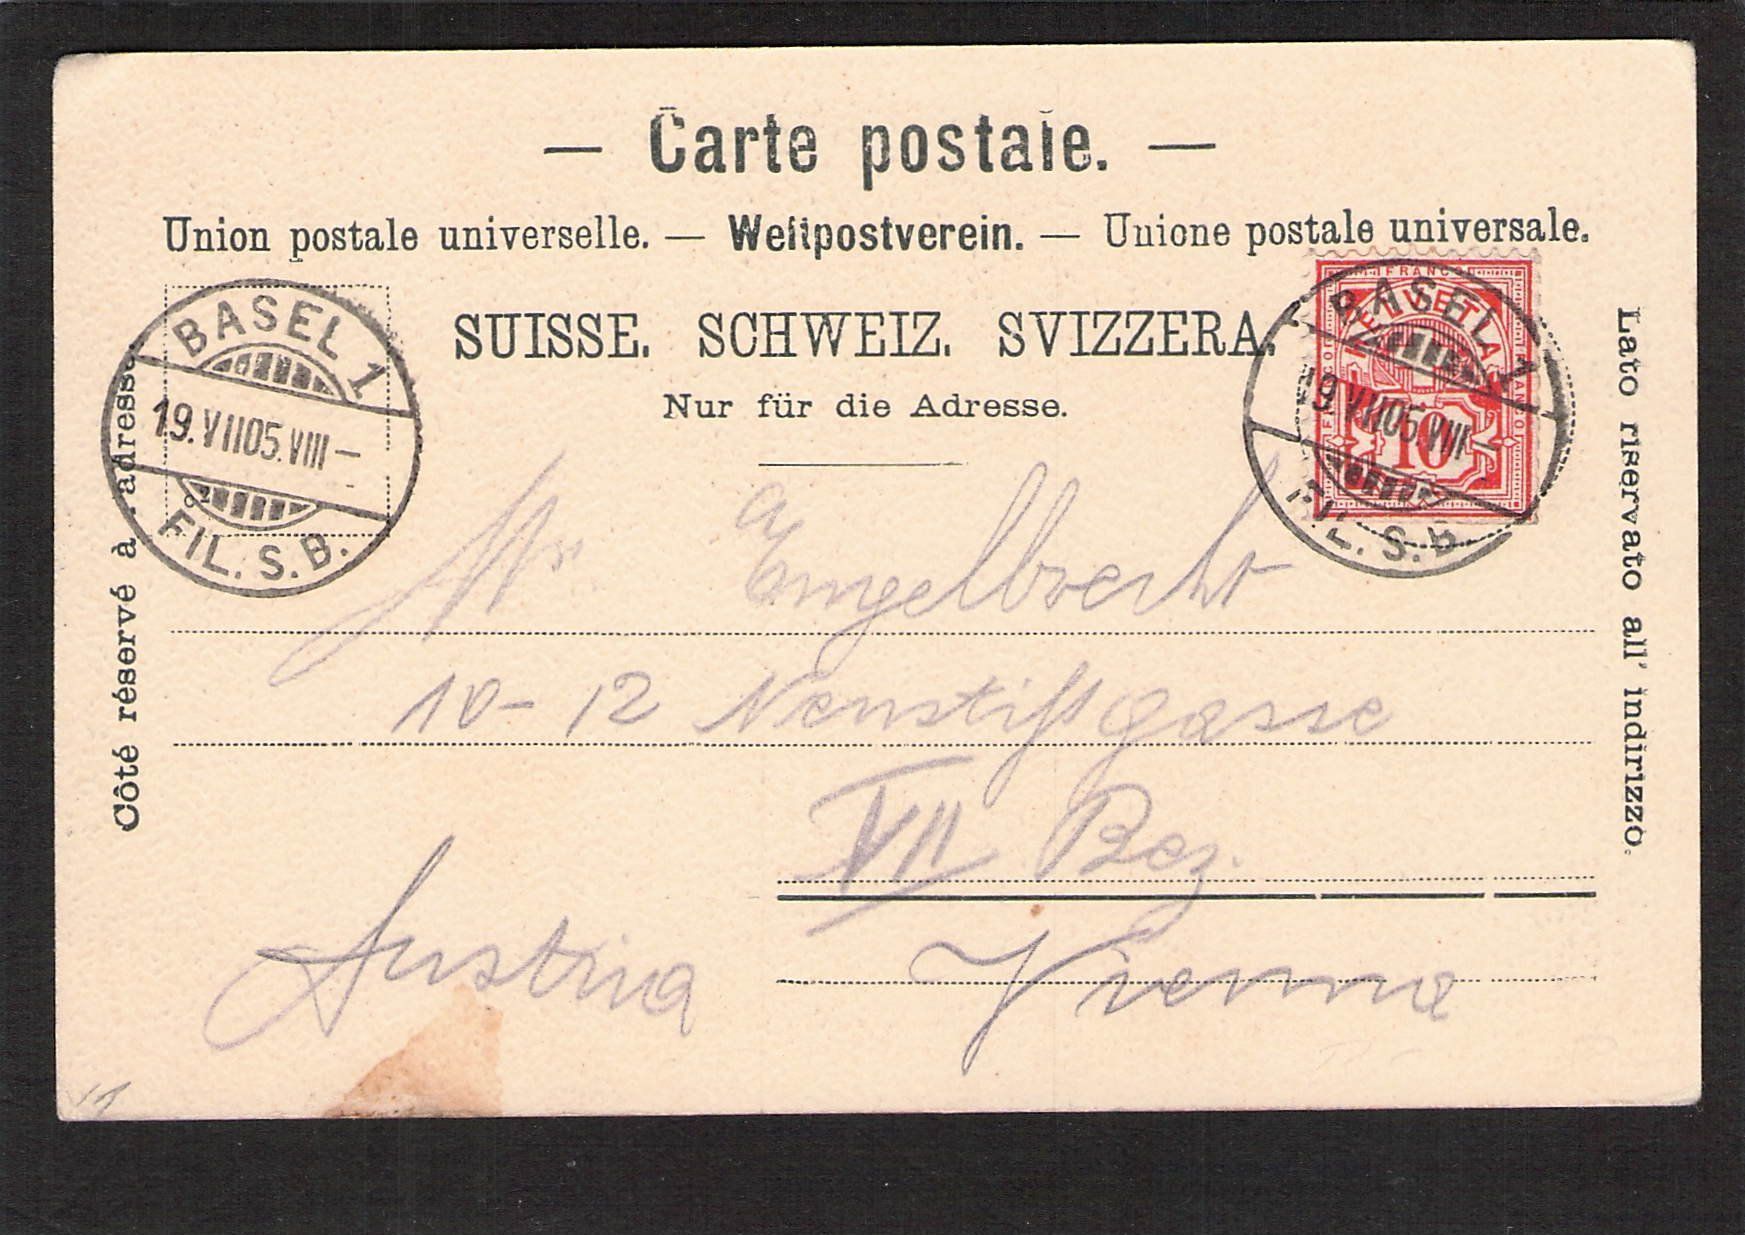 — Carte postale. —
Union postale universelle. — Weltpostverein. — Unione postale universale.
SUISSE. SCHWEIZ. SVIZZERA.
Nur für die Adresse.
Côté réservé à l'adresse
Lato riservato all' indirizzo.
BASEL 1
19.VII05.VIII—
FIL. S. B.
FRANCO
HELVETIA
10
BASEL 1
19.VII05.VIII—
FIL. S. B.
a
Mr Engelbrecht
10-12 Neustiftgasse
VII Bez.
Austria Vienna